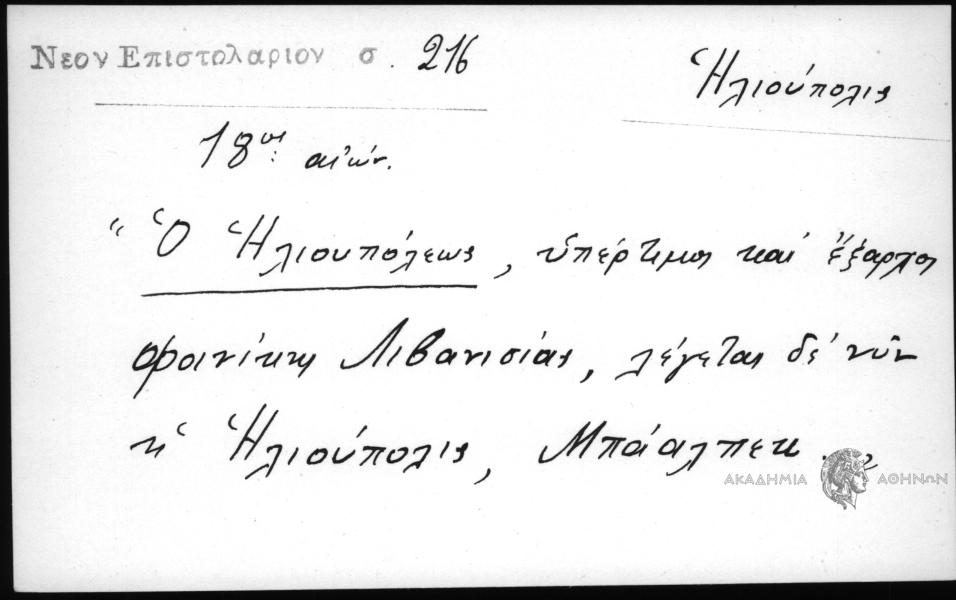 Νεον Επιστολαριον σ. 216
Ἡλιούπολις
18ος αἰών.
“ Ὁ Ἡλιουπόλεως, ὑπέρτιμος καὶ ἔξαρχος
Φοινίκης Λιβανισίας, λέγεται δὲ νῦν
ἡ Ἡλιούπολις, Μπάαλπεκ. „
ΑΚΑΔΗΜΙΑ ΑΘΗΝΩΝ